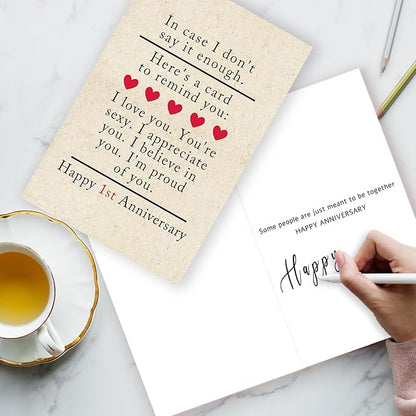 In case I don't
say it enough.
Here's a card
to remind you:
I love you. You're
sexy. I appreciate
you. I believe in
you. I'm proud
of you.
Happy 1st Anniversary
Some people are just meant to be together
HAPPY ANNIVERSARY
Happy